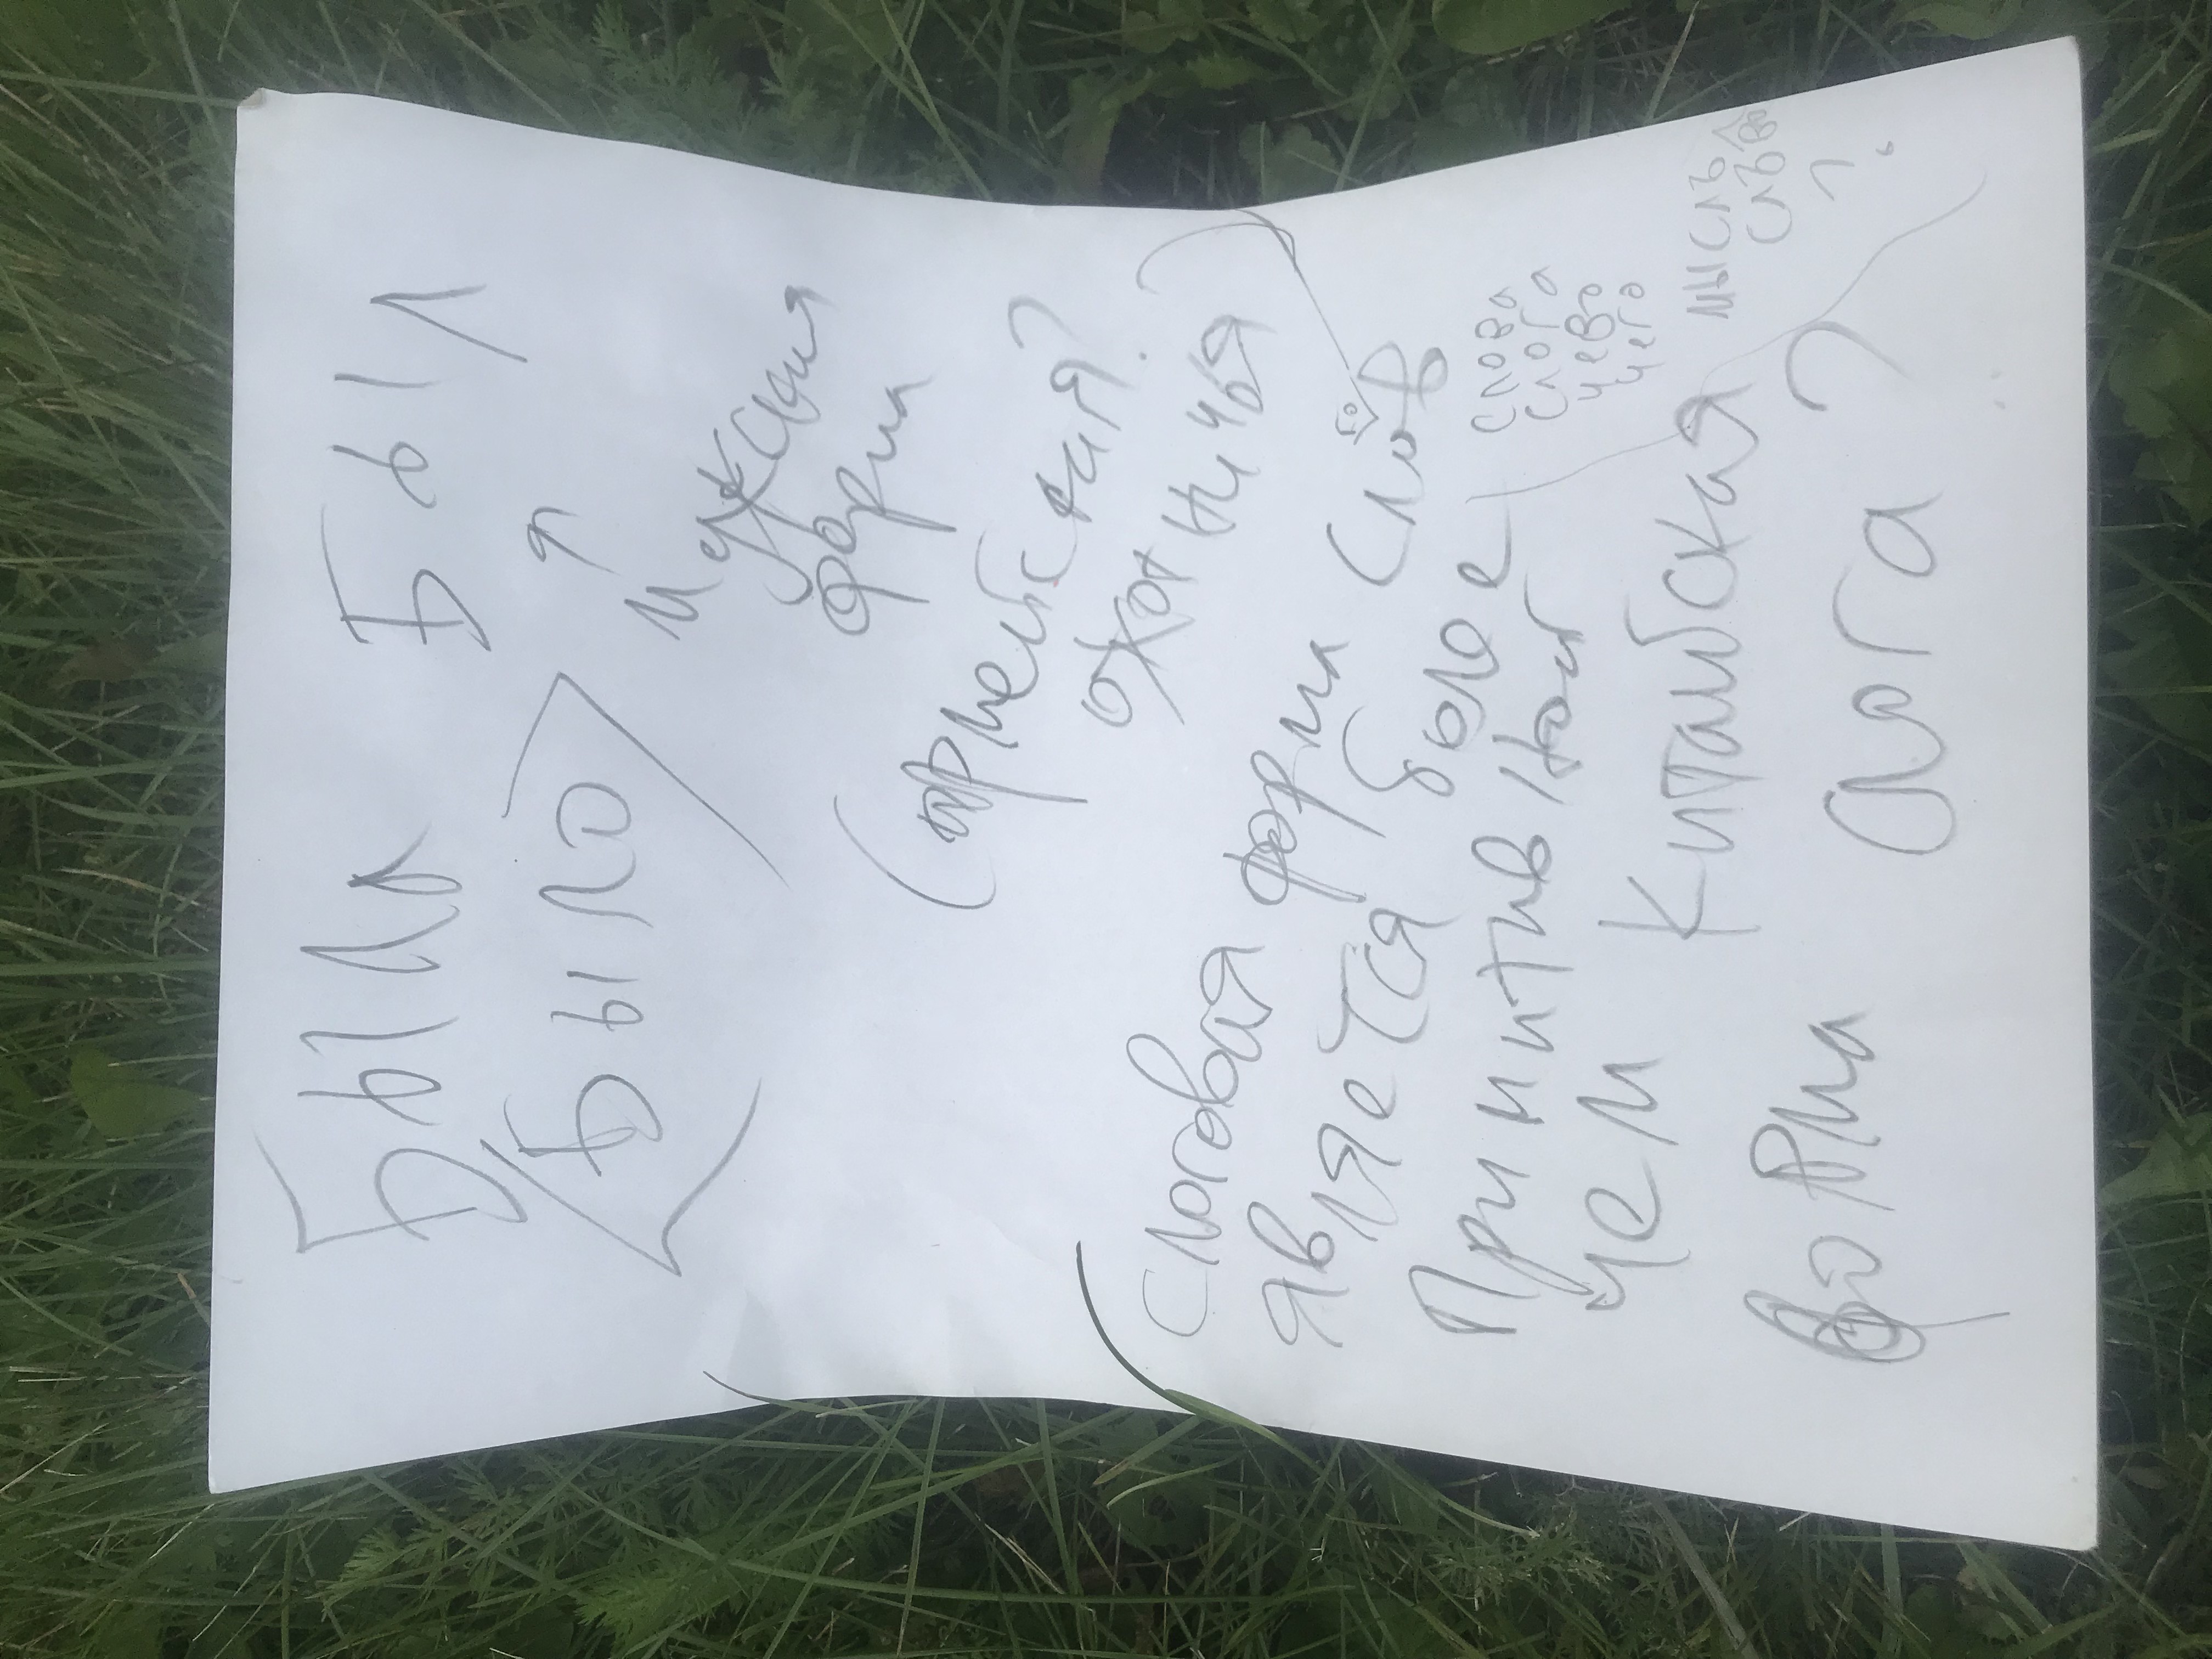 Была Был
Было
Мужская
форма
(армейская?
охотничья)
слоговая форма слов
го
является более
Примитивной
чем Китайская
форма слога?
слова
слога
чево
чего
мысль
слово
?